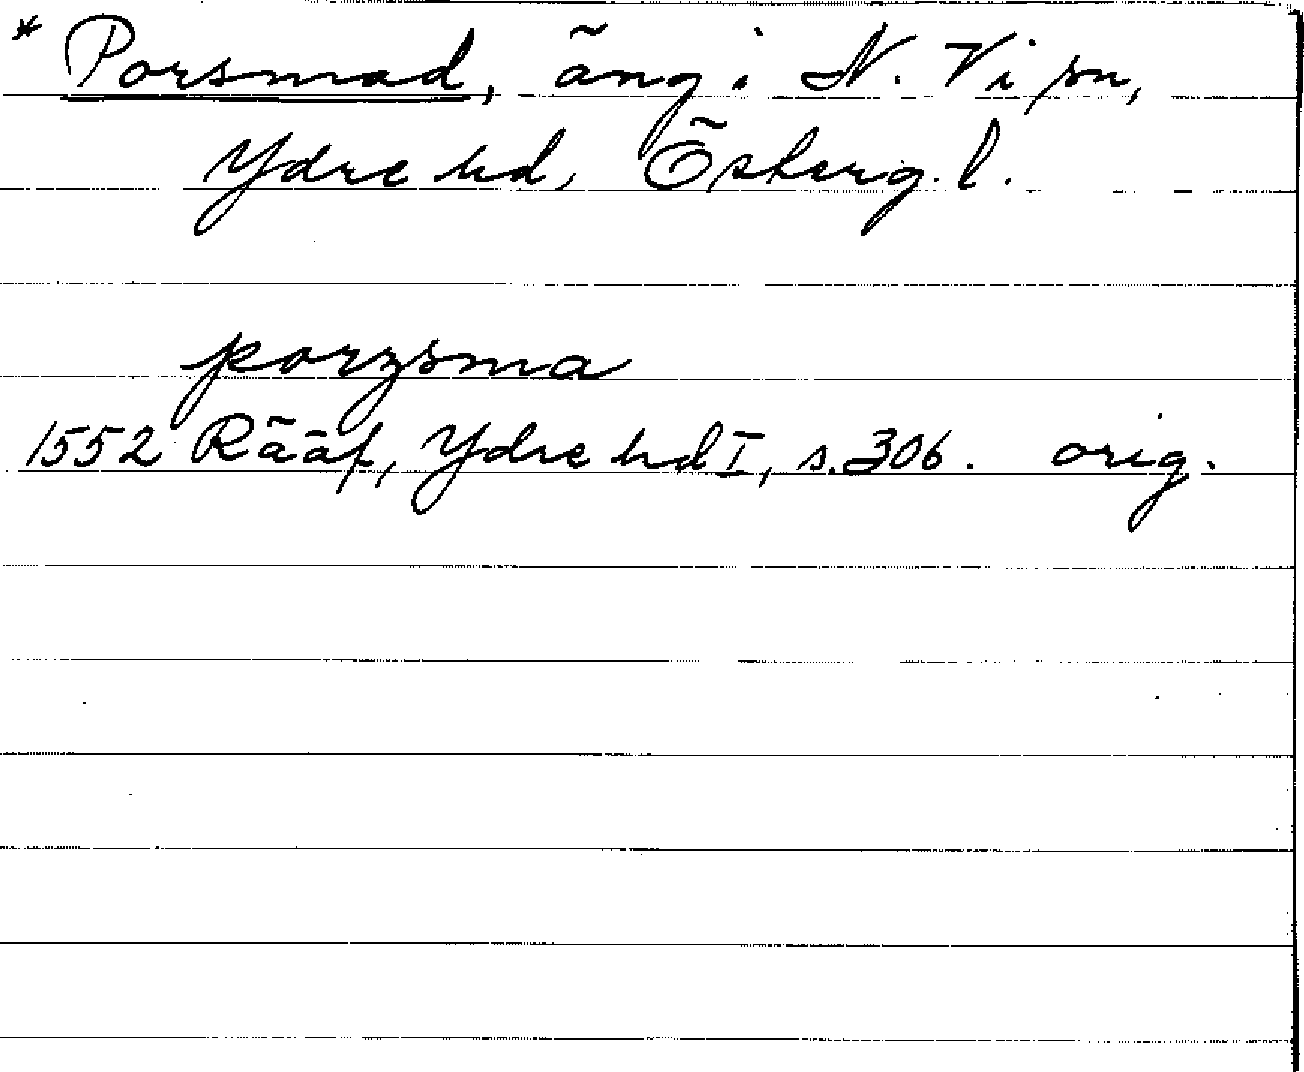 * Porsmad, äng i N. Vi sn,
Ydre hd, Österg. l.
porzsma
1552 Rääf, Ydre hd I, s. 306. orig.